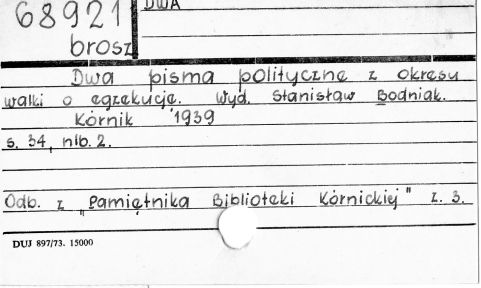 68921
DWA
brosz
Dwa pisma polityczne z okresu
walki o egzekucję. Wyd. Stanisław Bodniak.
Kórnik 1939
s. 34, nlb. 2.
Odb. z „Pamiętnika Biblioteki Kórnickiej" z. 3.
DUJ 897/73. 15000